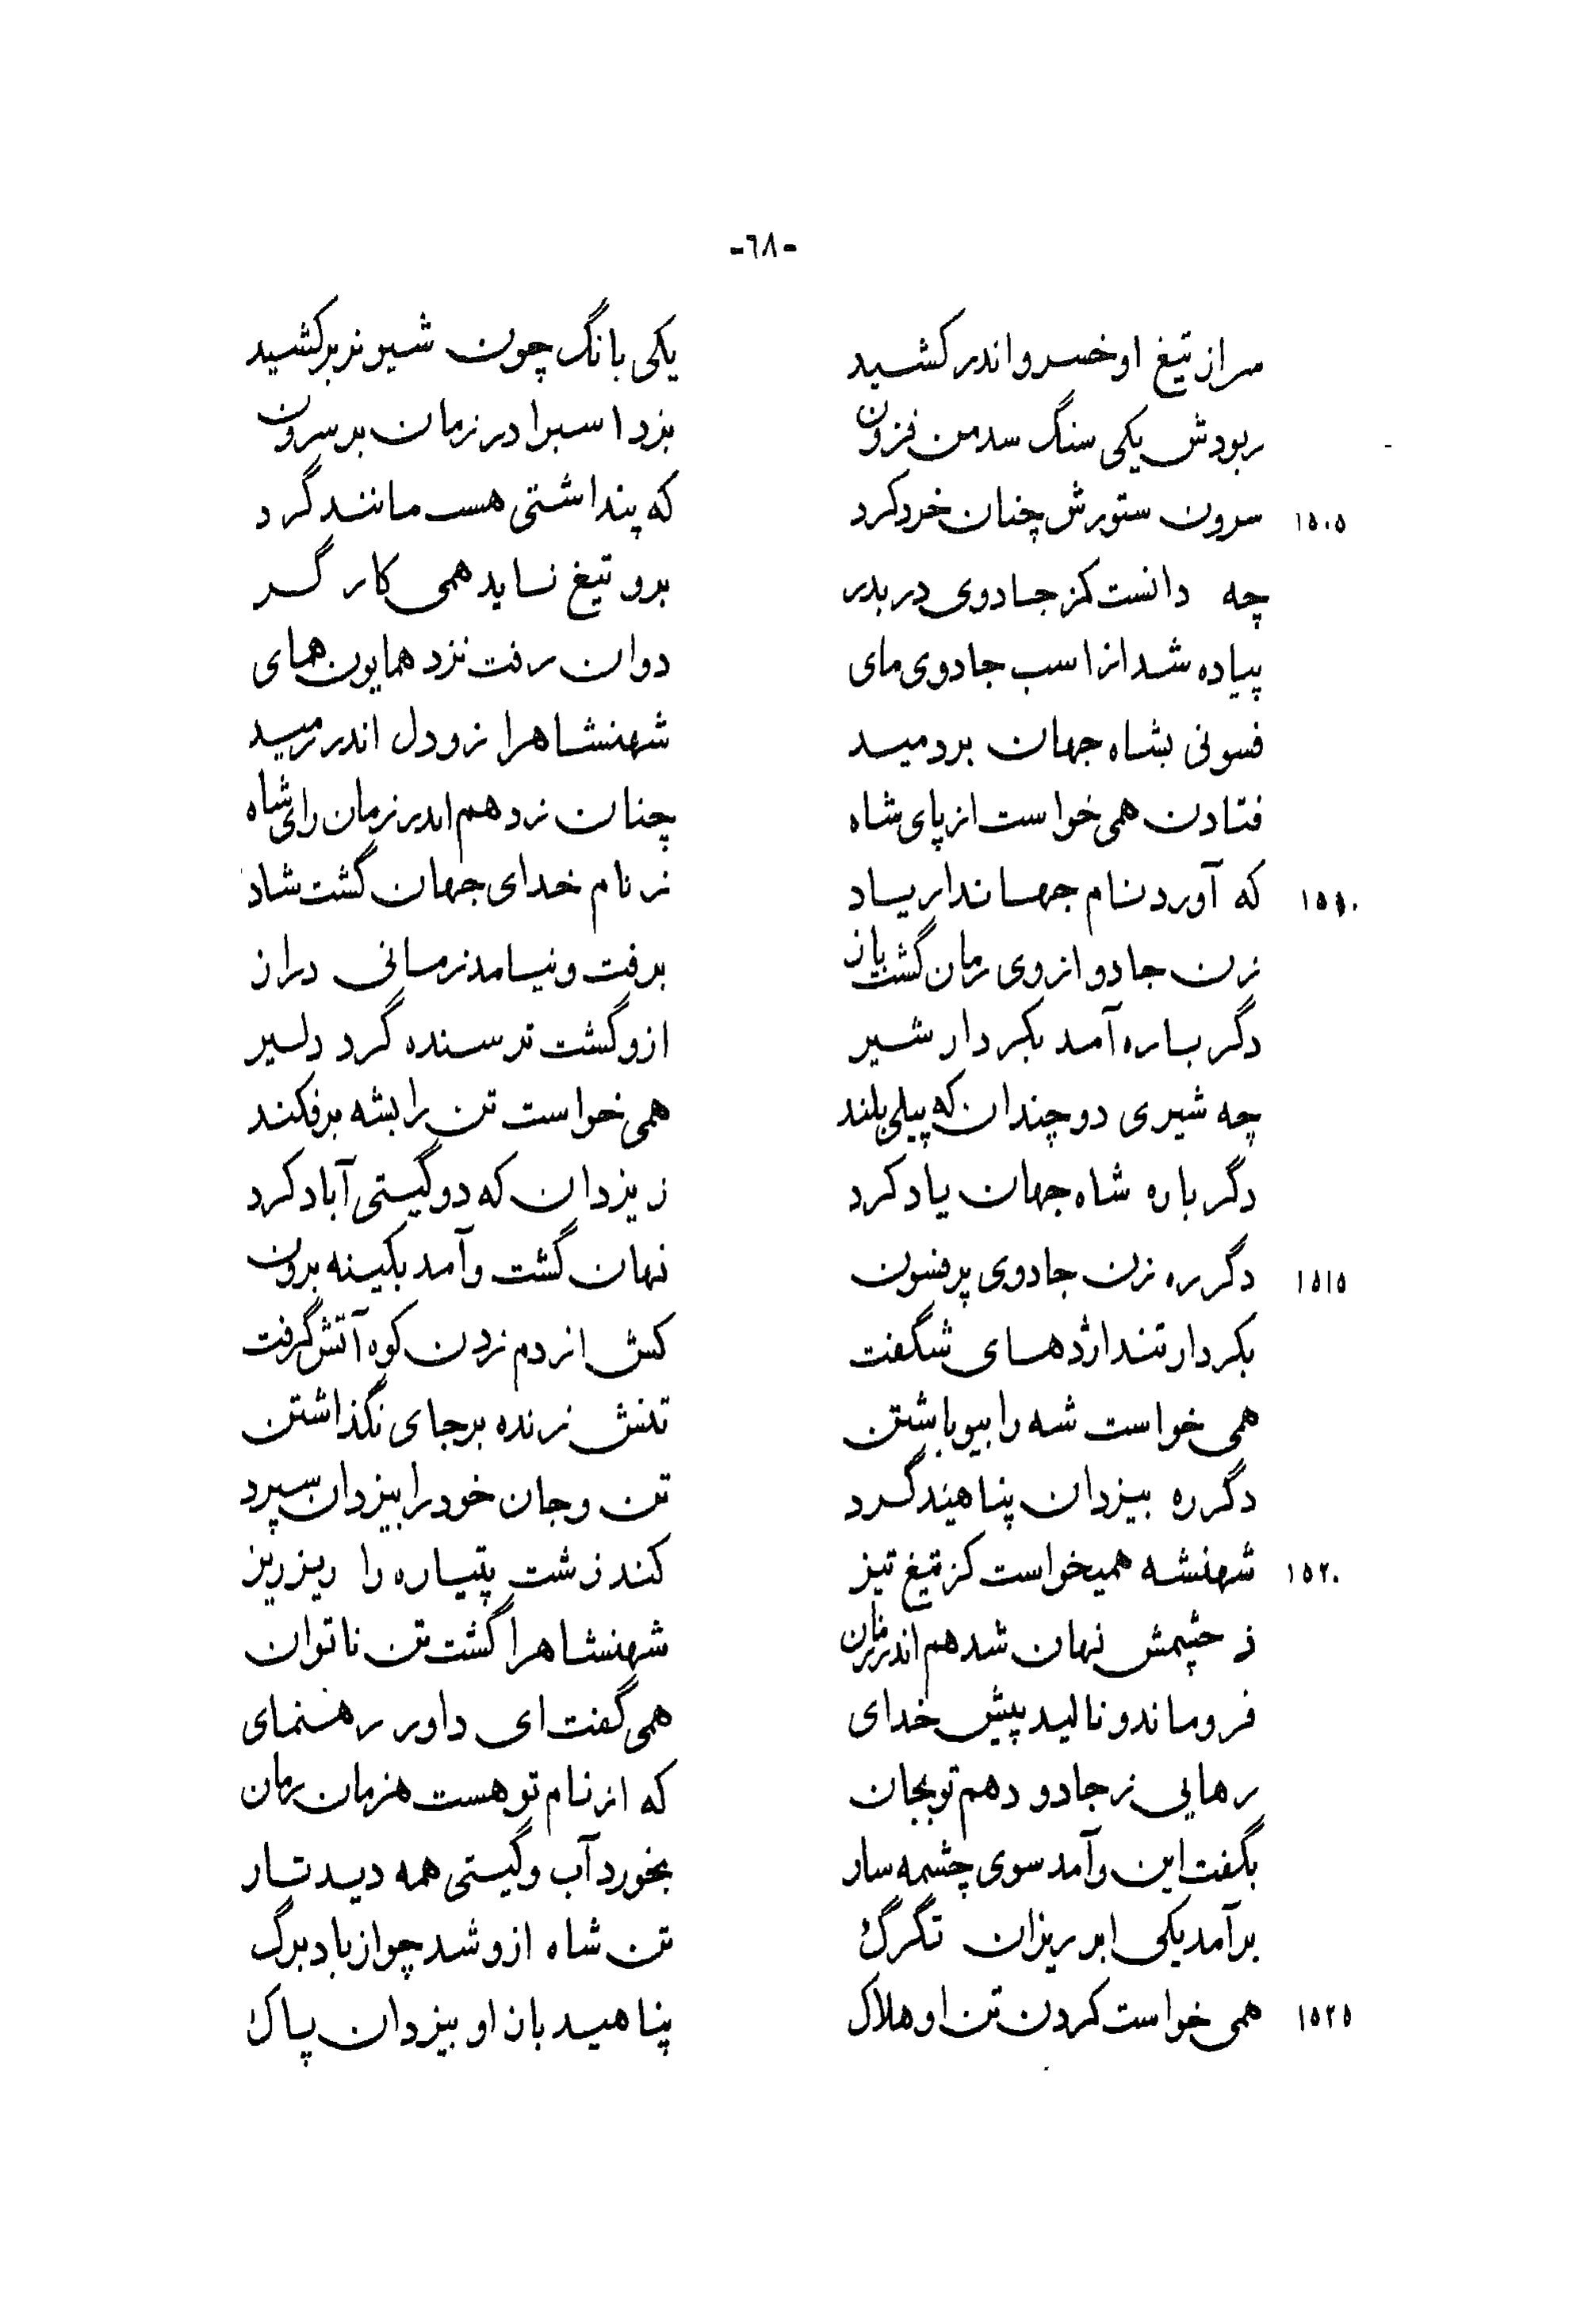 -٦٨-
سر از تیغ او خسرو اندر کشید یکی بانگ چون شیر نر برکشید
ربودش یکی سنگ سد من فزون بزد اسبرا در زمان بر سرون
١٥٠٥ سرون ستورش چنان خرد کرد که پنداشتی هست مانند گرد
چه دانست کز جادوی در بدر برو تیغ ناید همی کار گر
پیاده شد از اسب جادوی مای دوان رفت نزد همایون همای
فسونی بشاه جهان بردمید شهنشاهرا زو دل اندر رمید
فتادن همی خواست از پای شاه چنان زد هم اندر زمان رای شاه
١٥١٠ که آورد نام جهاندار یاد ز نام خدای جهان گشت شاد
زن جادو از وی زمان گشت باز برفت و نیامد زمانی دراز
دگر باره آمد بکردار شیر ازو گشت ترسنده گرد دلیر
چه شیری دو چندان که پیلی بلند همی خواست تن را بشه برفکند
دگر باره شاه جهان یاد کرد ز یزدان که دو گیتی آباد کرد
١٥١٥ دگر ره زن جادوی پر فسون نهان گشت و آمد بکینه برون
بکردار تند اژدهای شگفت کش از دم زدن کوه آتش گرفت
همی خواست شه را بیوباشتن تنش زنده بر جای نگذاشتن
دگر ره بیزدان پناهید گرد تن و جان خود را بیزدان سپرد
١٥٢٠ شهنشه همیخواست کز تیغ تیز کند زشت پتیاره را ریز ریز
ز چشمش نهان شد هم اندر زمان شهنشاهرا گشت تن ناتوان
فرو ماند و نالید پیش خدای همی گفت ای داور رهنمای
رهایی ز جادو دهم تو بجان که از نام تو هست هزمان زمان
بگفت این و آمد سوی چشمه سار بخورد آب و گیتی همه دید تار
برآمد یکی ابر ریزان تگرگ تن شاه ازو شد چو از باد برگ
١٥٢٥ همی خواست کردن تن او هلاک پناهید بازاو بیزدان پاک